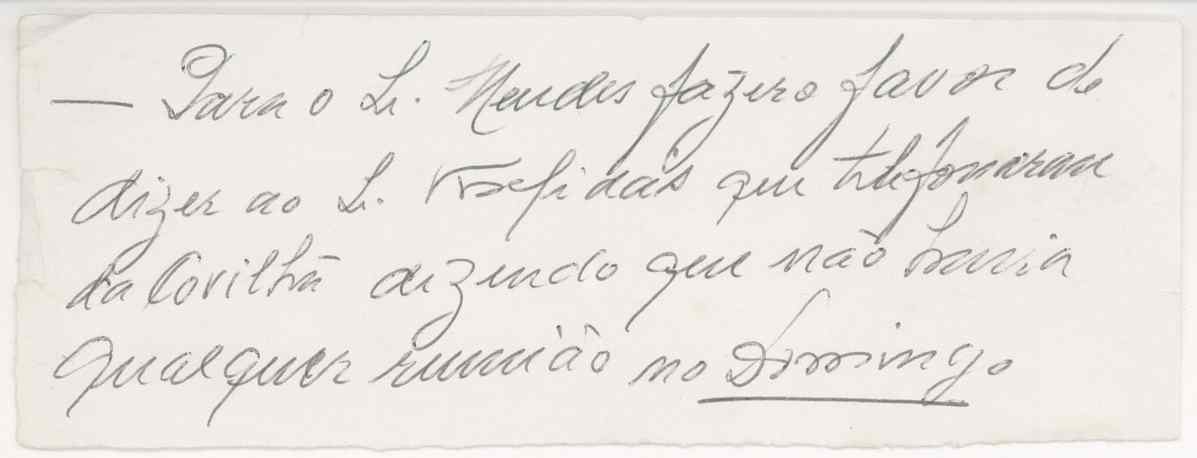 — Para o Sr. Mendes fazer o favor de
dizer ao Sr. que telefonaram
da Covilhã dizendo que não havia
qualquer reunião no Domingo